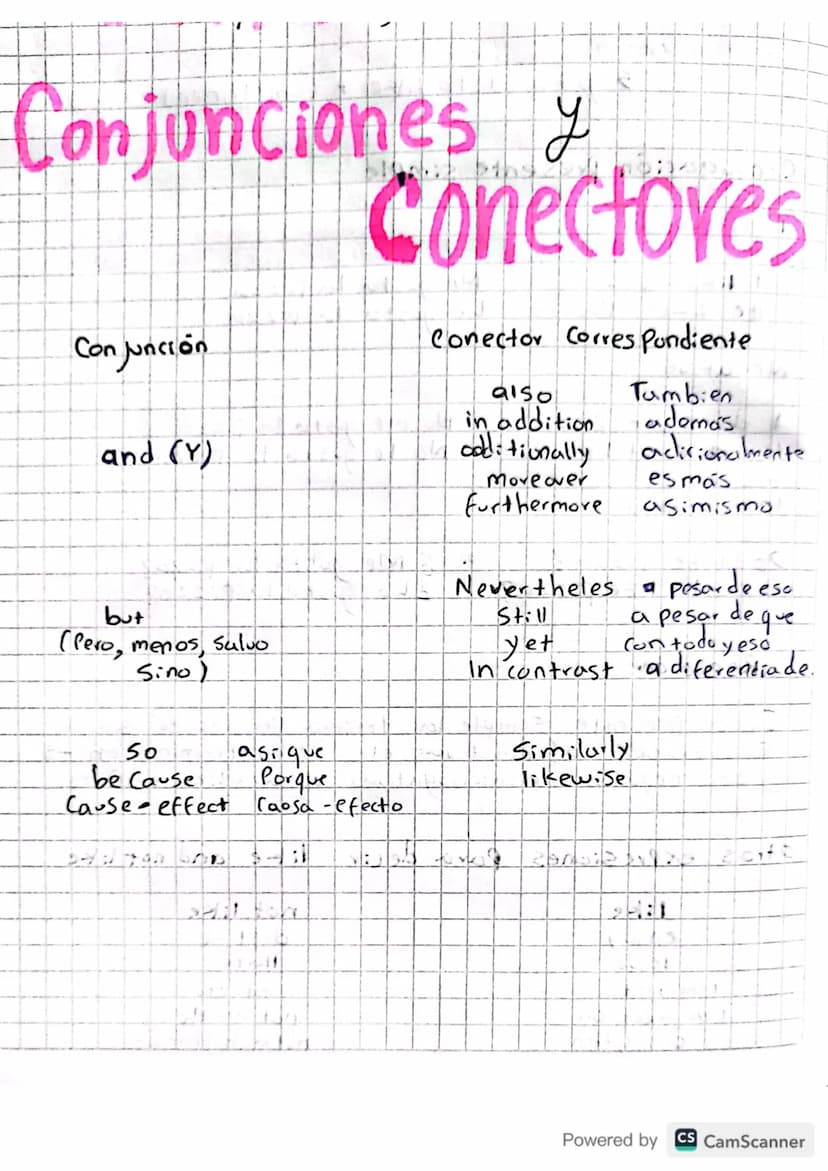 Conjunciones y
Conectores
Conjunción
Conector Correspondiente
and (Y)
also Tambien
in addition además
additionally adicionalmente
moveover es más
furthermore asimismo
but
(Pero, menos, salvo
sino)
Nevertheles a pesar de eso
Still a pesar de que
yet con todo y eso
In contrast a diferentia de.
so asi que
be cause Porque
Cause-effect Caosa-efecto
Similarly
likewise
Powered by CS CamScanner